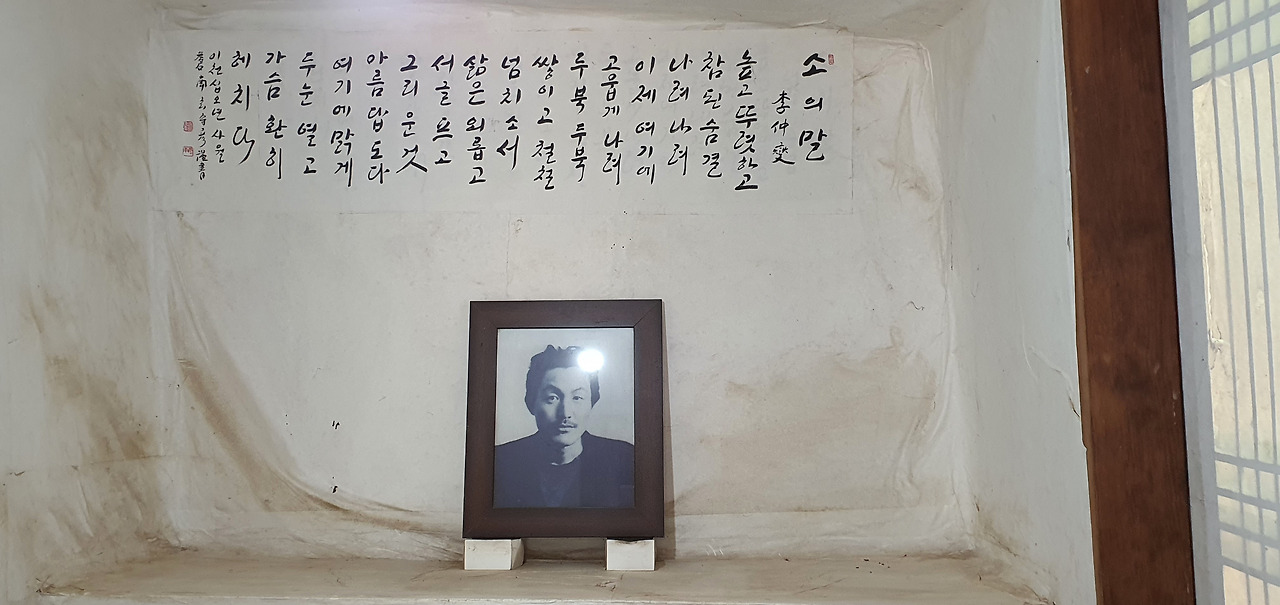 소의 말
李仲燮
높고 뚜렷하고
참된 숨결
나려 나려
이제 여기에
고웁게 나려
두북 두북
쌍이고 철철
넘치소서
삶은 외롭고
서글프고
그리운 것
아름답도다
여기에 맑게
두 눈 열고
가슴 환히
헤치다
이천십오년 사월